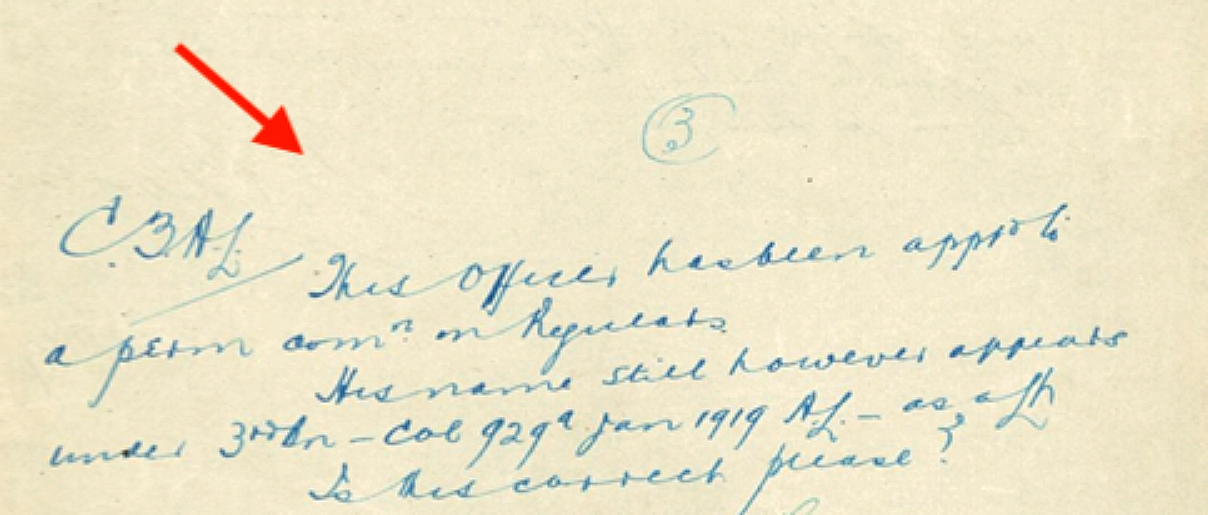 3
C.3.A.L.
This Officer has been appt to
a perm comn in Regulars.
His name still however appears
under 3rd Bn - Col 929a Jan 1919 A.L. - as a
Is this correct please?